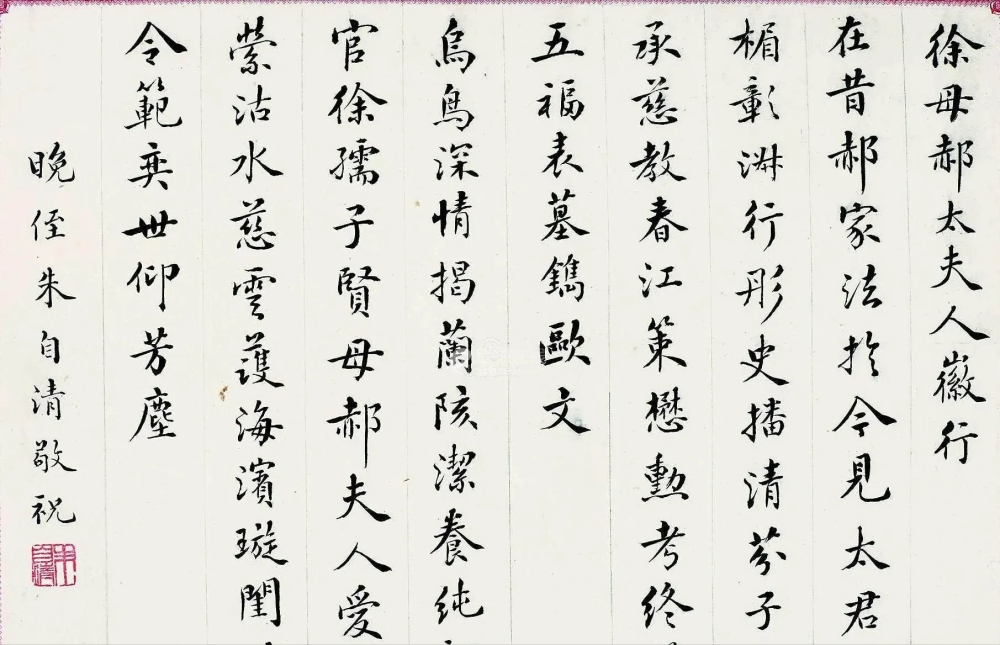 徐母郝太夫人徽行
在昔郝家法於今見太君
楣彰淋行彤史播清芬子
承慈教春江策懋勳考終
五福表墓鐫歐文
烏鳥深情揭蘭陔潔養純
官徐孺子賢母郝夫人愛
縈沽水慈雲護海濱璇閨
令範奕世仰芳塵
晚侄朱自清敬祝